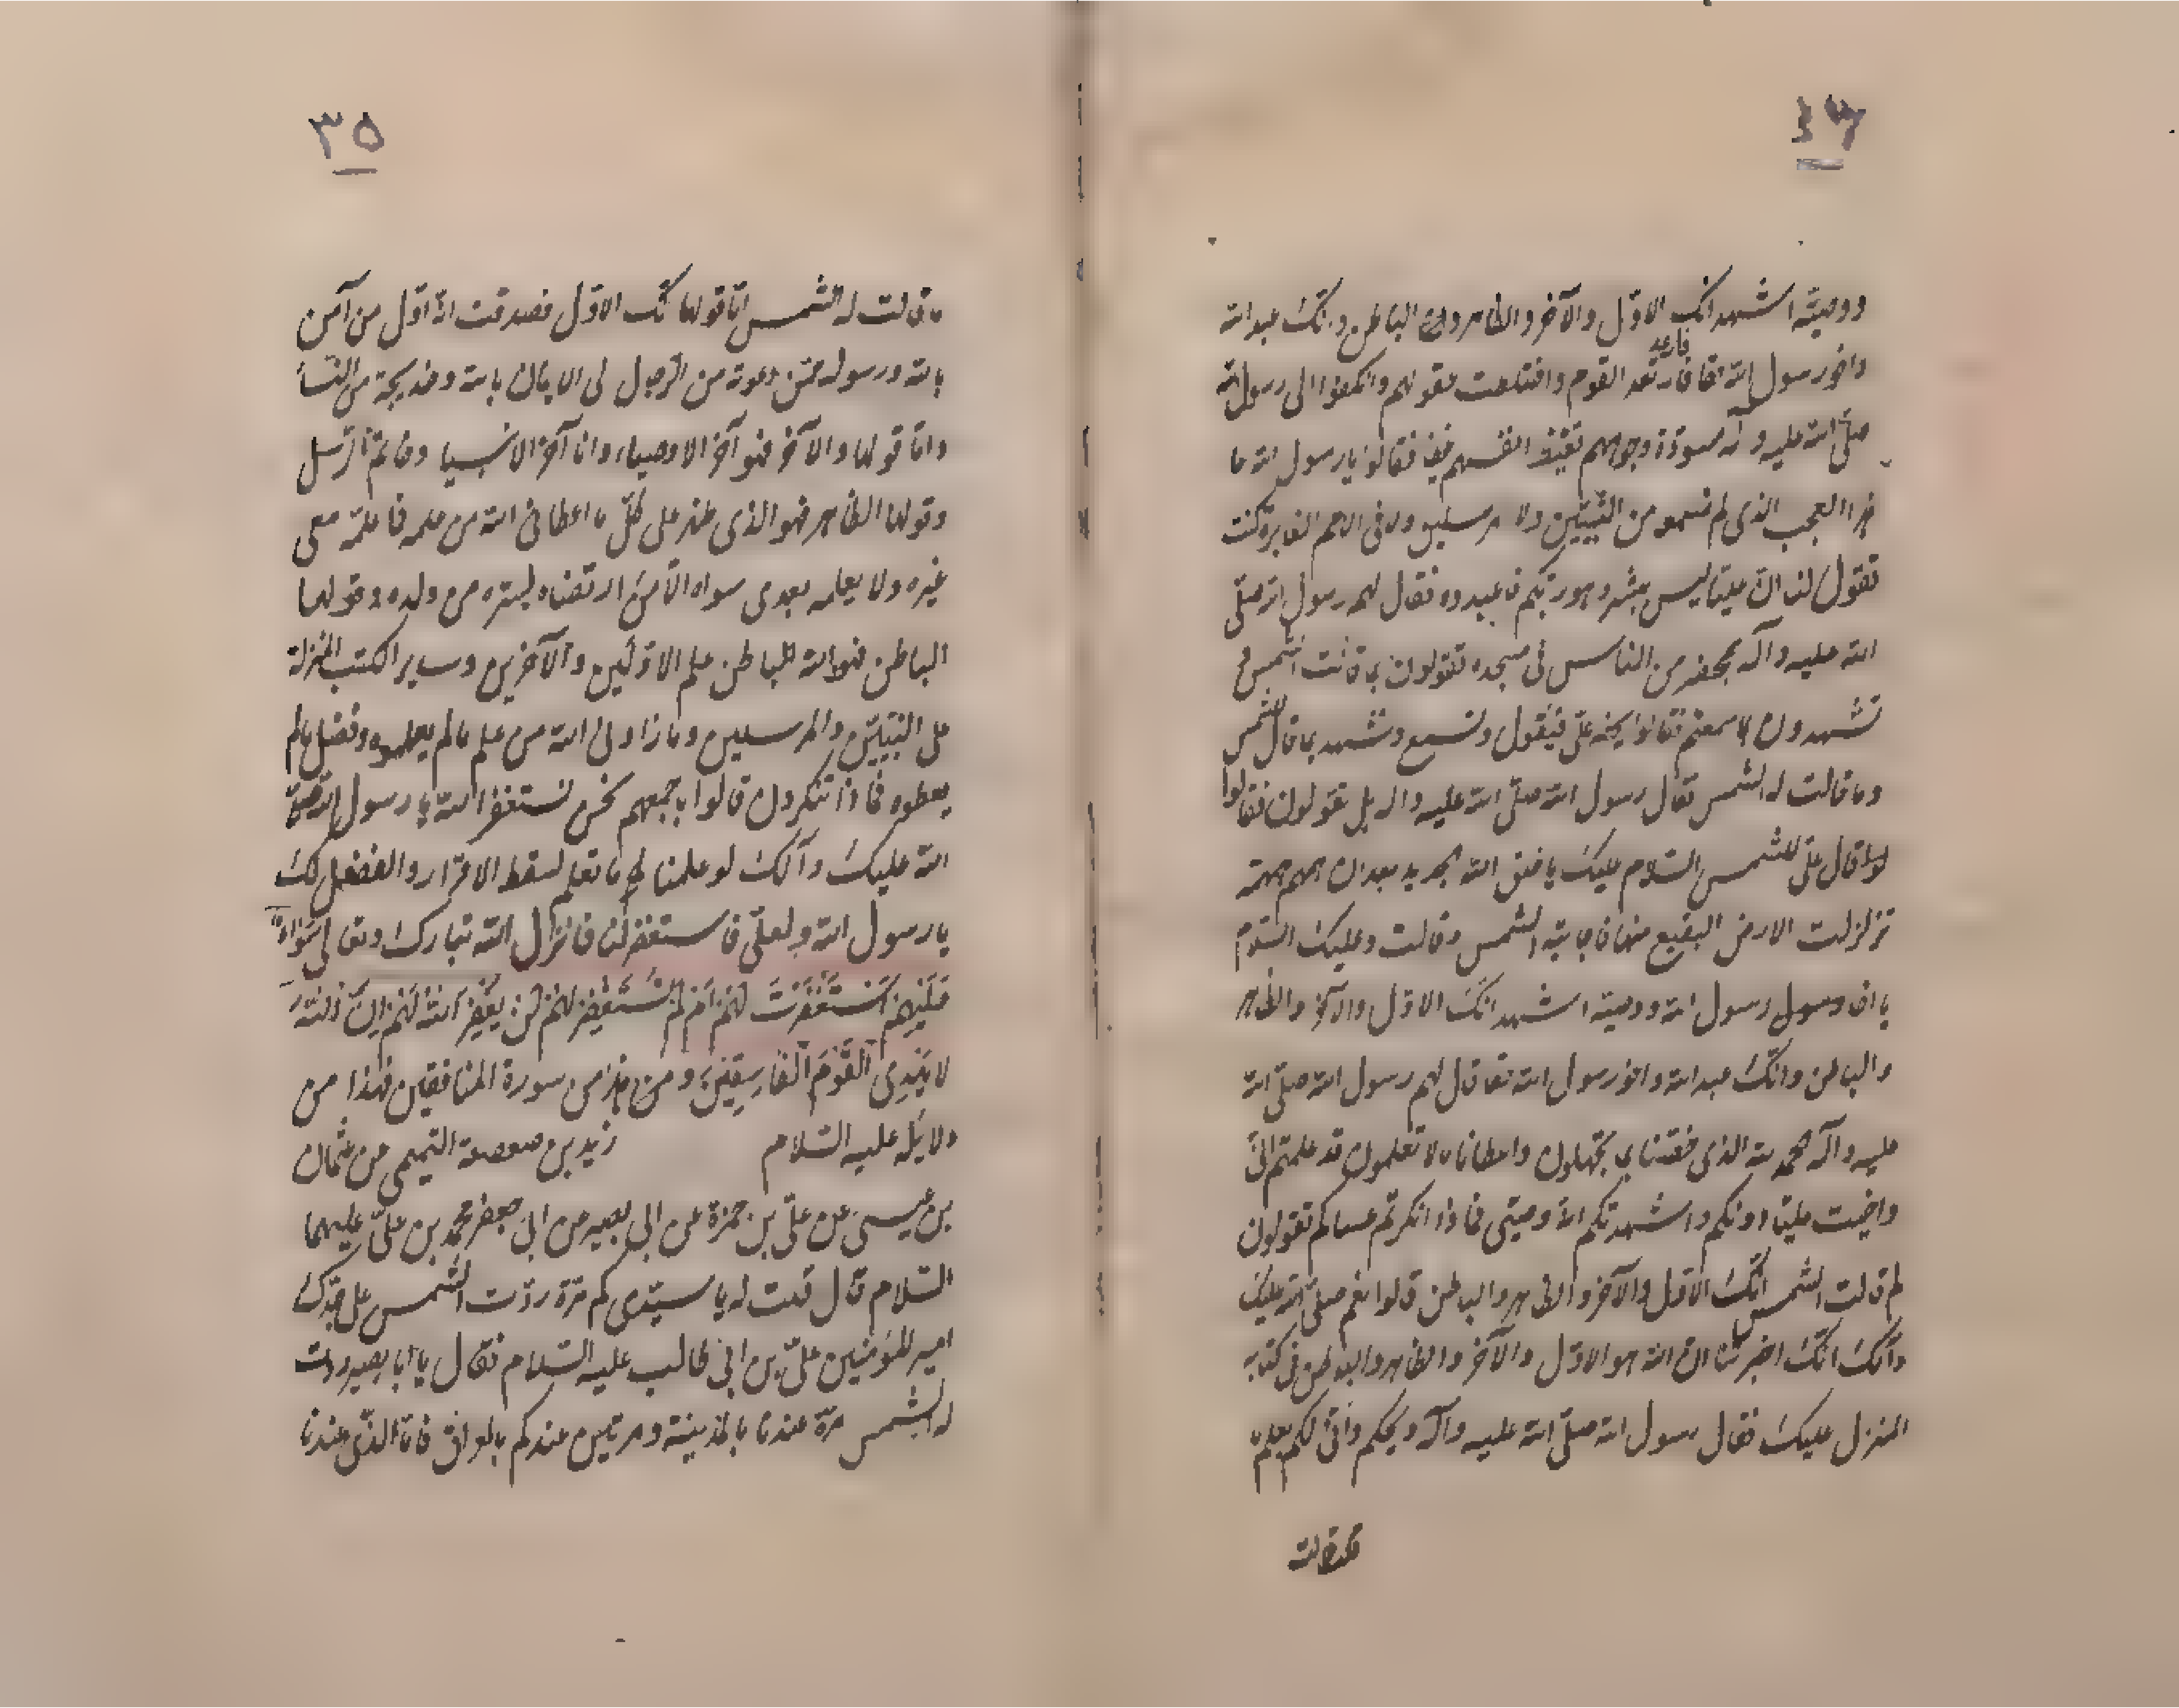 ٣٤
ووصيته اشهد انك الاول والآخر والظاهر والباطن وانك عبد الله
واخو رسول الله حقا فارتعد القوم واختلعت عقولهم وانكفوا الى رسول الله
فارعد
صلّى الله عليه وآله مسودة وجوههم تفيض انفسهم فقالوا يا رسول الله ما
هذا العجب الذى لم نسمعه من النبيّين ولا مرسلين ولا فى الامم الغابرة كنت
تقول لنا انّ عليّا ليس ببشر وهو ربّكم فاعبدوه فقال لهم رسول الله صلّى
الله عليه وآله بمحضر من الناس فى مسجده تقولون ما قالت الشمس و
تشهدون بما سمعتم فقالوا يحضر علىّ فيقول ونسمع ونشهد بما قال للشمس
وما قالت له الشمس فقال رسول الله صلّى الله عليه واله بل تقولون فقالوا
قال علىّ للشمس السّلام عليك يا خلق الله الجديد بعد ان همهم همهمة
تزلزلت الارض البقيع منها فاجابته الشمس وقالت وعليك السّلام
يا اخا رسول الله ووصيته اشهد انّك الاوّل والآخر والظاهر
والباطن وانّك عبد الله واخو رسول الله حقا قال لهم رسول الله صلّى الله
عليه وآله الحمد لله الذى خصّنا بما تجهلون واعطانا ما لا تعلمون قد علمتم انّى
واخيت عليّا دونكم واشهدتكم انّه وصيّى فماذا انكرتم عساكم تقولون
لم قالت الشمس انّك الاوّل والآخر والظاهر والباطن قالوا نعم صلّى الله عليك
وآلك انّك اخبرتنا انّ الله هو الاوّل والآخر والظاهر والباطن فى كتابه
المنزل عليك فقال رسول الله صلّى الله عليه وآله ويحكم وانّى لكم بعلم
ما قالت
٣٥
ما قالت له الشمس امّا قولها انّك الاوّل فصدقت انّه اوّل من آمن
بالله ورسوله ممّن دعوته من الرّجال الى الايمان بالله وخديجة من النّساء
وامّا قولها والآخر فهو آخر الاوصياء وانا آخر الانبياء وخاتم الرّسل
وقولها الظاهر فهو الذى ظهر على كلّ ما اعطانى الله من علمه فما علمه معى
غيره ولا يعلمه بعدى سواه الّا من ارتضاه لسرّه من ولده وقولها
الباطن فهو والله الباطن علم الاوّلين والآخرين وساير الكتب المنزلة
على النبيّين والمرسلين وما زادنى الله من علم ما لم يعلموه وفضل ما لم
يعطوه فماذا تنكرون قالوا باجمعهم نحن نستغفر الله يا رسول الله صلّى
الله عليك وآلك لو علمنا ما تعلم لسقط الاقرار والفضل لك
يا رسول الله ولعلىّ فاستغفر لنا فانزل الله تبارك وتعالى سَوَاءٌ
عَلَيْهِمْ اَسْتَغْفَرْتَ لَهُمْ اَمْ لَمْ تَسْتَغْفِرْ لَهُمْ لَنْ يَغْفِرَ اللهُ لَهُمْ اِنَّ اللهَ
لا يَهْدِى الْقَوْمَ الْفَاسِقِينَ وهذا من سورة المنافقين فهذا من
دلايله عليه السّلام زيد بن صعصعة التميمى من عثمان
بن عيسى عن علىّ بن حمزة عن ابى بصير عن ابى جعفر محمّد بن علىّ عليهما
السّلام قال قلت له يا سيّدى كم مرّة ردّت الشمس على جدّك
امير المؤمنين علىّ بن ابى طالب عليه السّلام فقال يا ابا بصير ردت
له الشمس مرّة عندنا بالمدينة ومرتين عندكم بالعراق فامّا الذّى عندنا